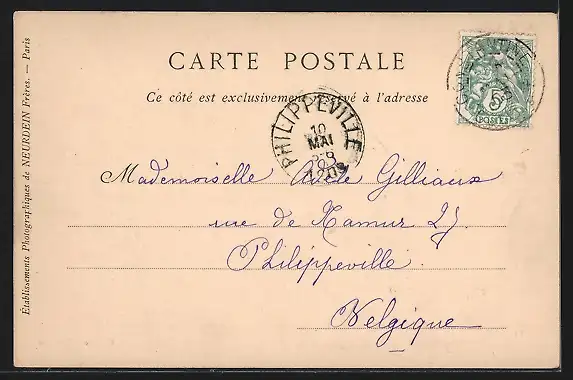 CARTE POSTALE
Ce côté est exclusivement réservé à l'adresse
5
POSTES
PHILIPPEVILLE
10
MAI
Mademoiselle Adèle Gilliaux
rue de Namur 27.
Philippeville.
Belgique
Etablissements Photographiques de NEURDEIN Frères. — Paris